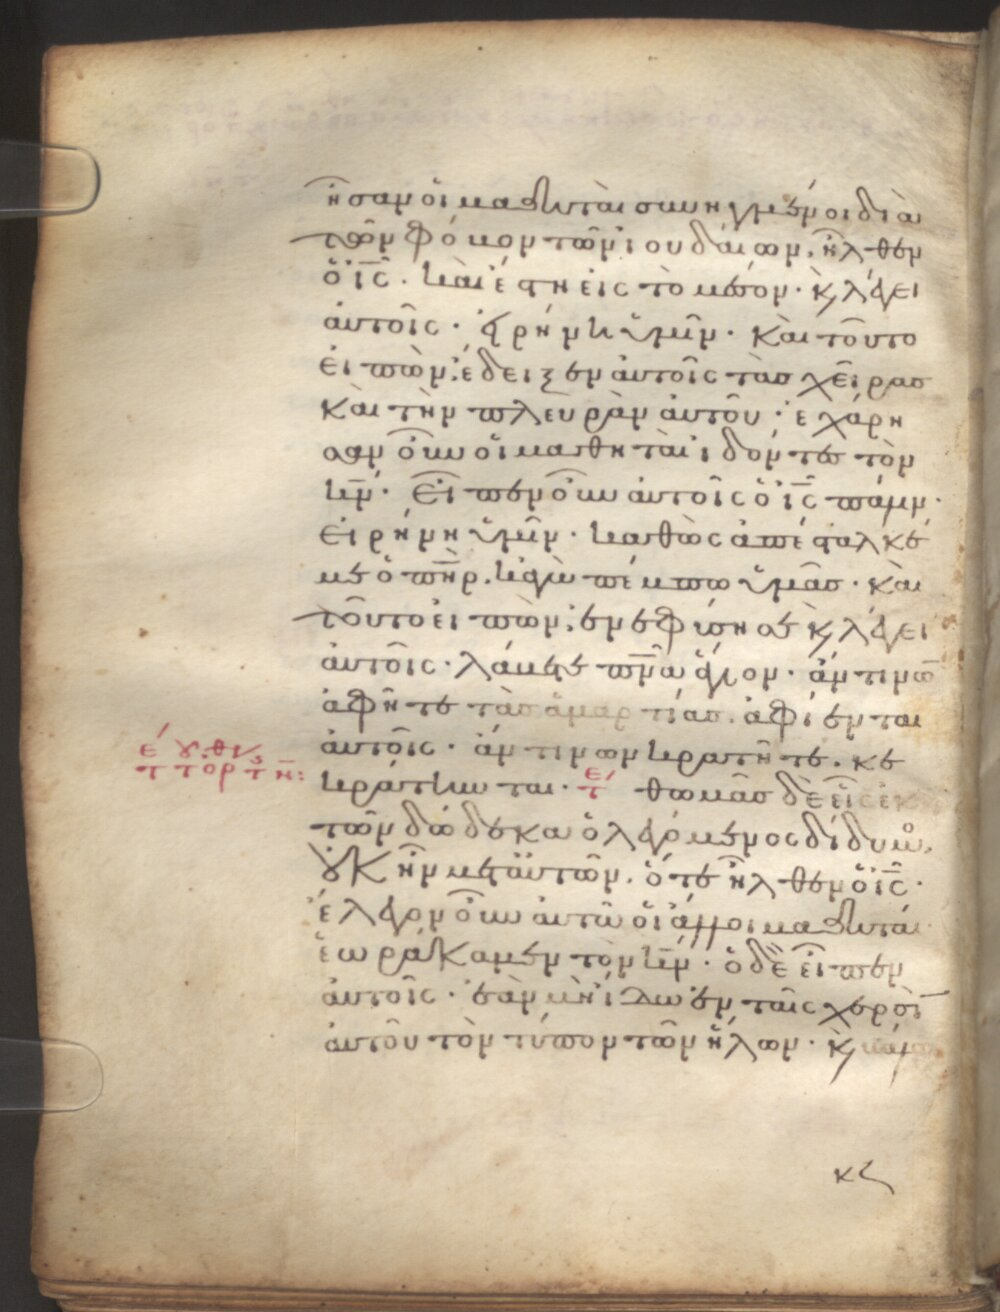 ἦσαν οἱ μαθηταὶ συνηγμένοι διὰ
τὸν φόβον τῶν ἰουδαίων. ἦλθεν
ὁ ι̅ς̅· καὶ ἔστη εἰς τὸ μέσον· κ̀ λέγει
αὐτοῖς· εἰρήνη ὑμῖν· καὶ τοῦτο
εἰπὼν· ἔδειξεν αὐτοῖς τὰσ χεῖρασ
καὶ τὴν πλευρὰν αὐτοῦ· ἐχάρη
σαν οὖν οἱ μαθηταὶ ἰδόντες τὸν
κ̅ν̅· εἶπεν οὖν αὐτοῖς ὁ ι̅ς̅ πάλιν·
εἰρήνη ὑμῖν· καθὼς ἀπέσταλκέ
με ὁ π̅η̅ρ. κἀγὼ πέμπω ὑμᾶσ· καὶ
τοῦτο εἰπὼν· ἐνεφύσησε κ̀ λέγει
αὐτοῖς· λάβετε π̅ν̅α ἅγιον· ἄν τινω̅
ἀφῆτε τὰσ ἁμαρτίασ. ἀφίενται
αὐτοῖς· ἄν τινων κρατῆτε. κε
κράτηνται· τέ θωμᾶσ δὲ εἷς ἐκ
τῶν δώδεκα ὁ λεγόμενος δίδυμο.
οὐκ ἦν μετ αὐτῶν. ὅτε ἦλθεν ὁ ι̅ς̅·
ἔλεγον οὖν αὐτῶ οἱ ἄλλοι μαθηταί·
ἑωράκαμεν τὸν κ̅ν̅· ὁ δὲ εἶπεν
αὐτοῖς· ἐὰν μὴ ἴδω ἐν ταῖς χερσὶ
αὐτοῦ τὸν τύπον τῶν ἥλων· κ̀ βάλω
κζ